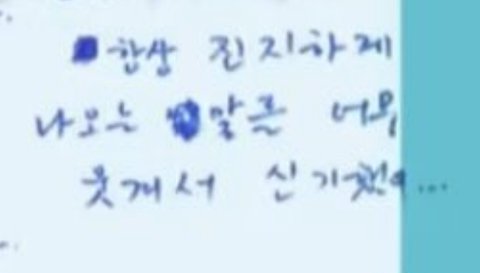 항상 진지하게
나오는 말른 너무
웃겨서 신기했어...